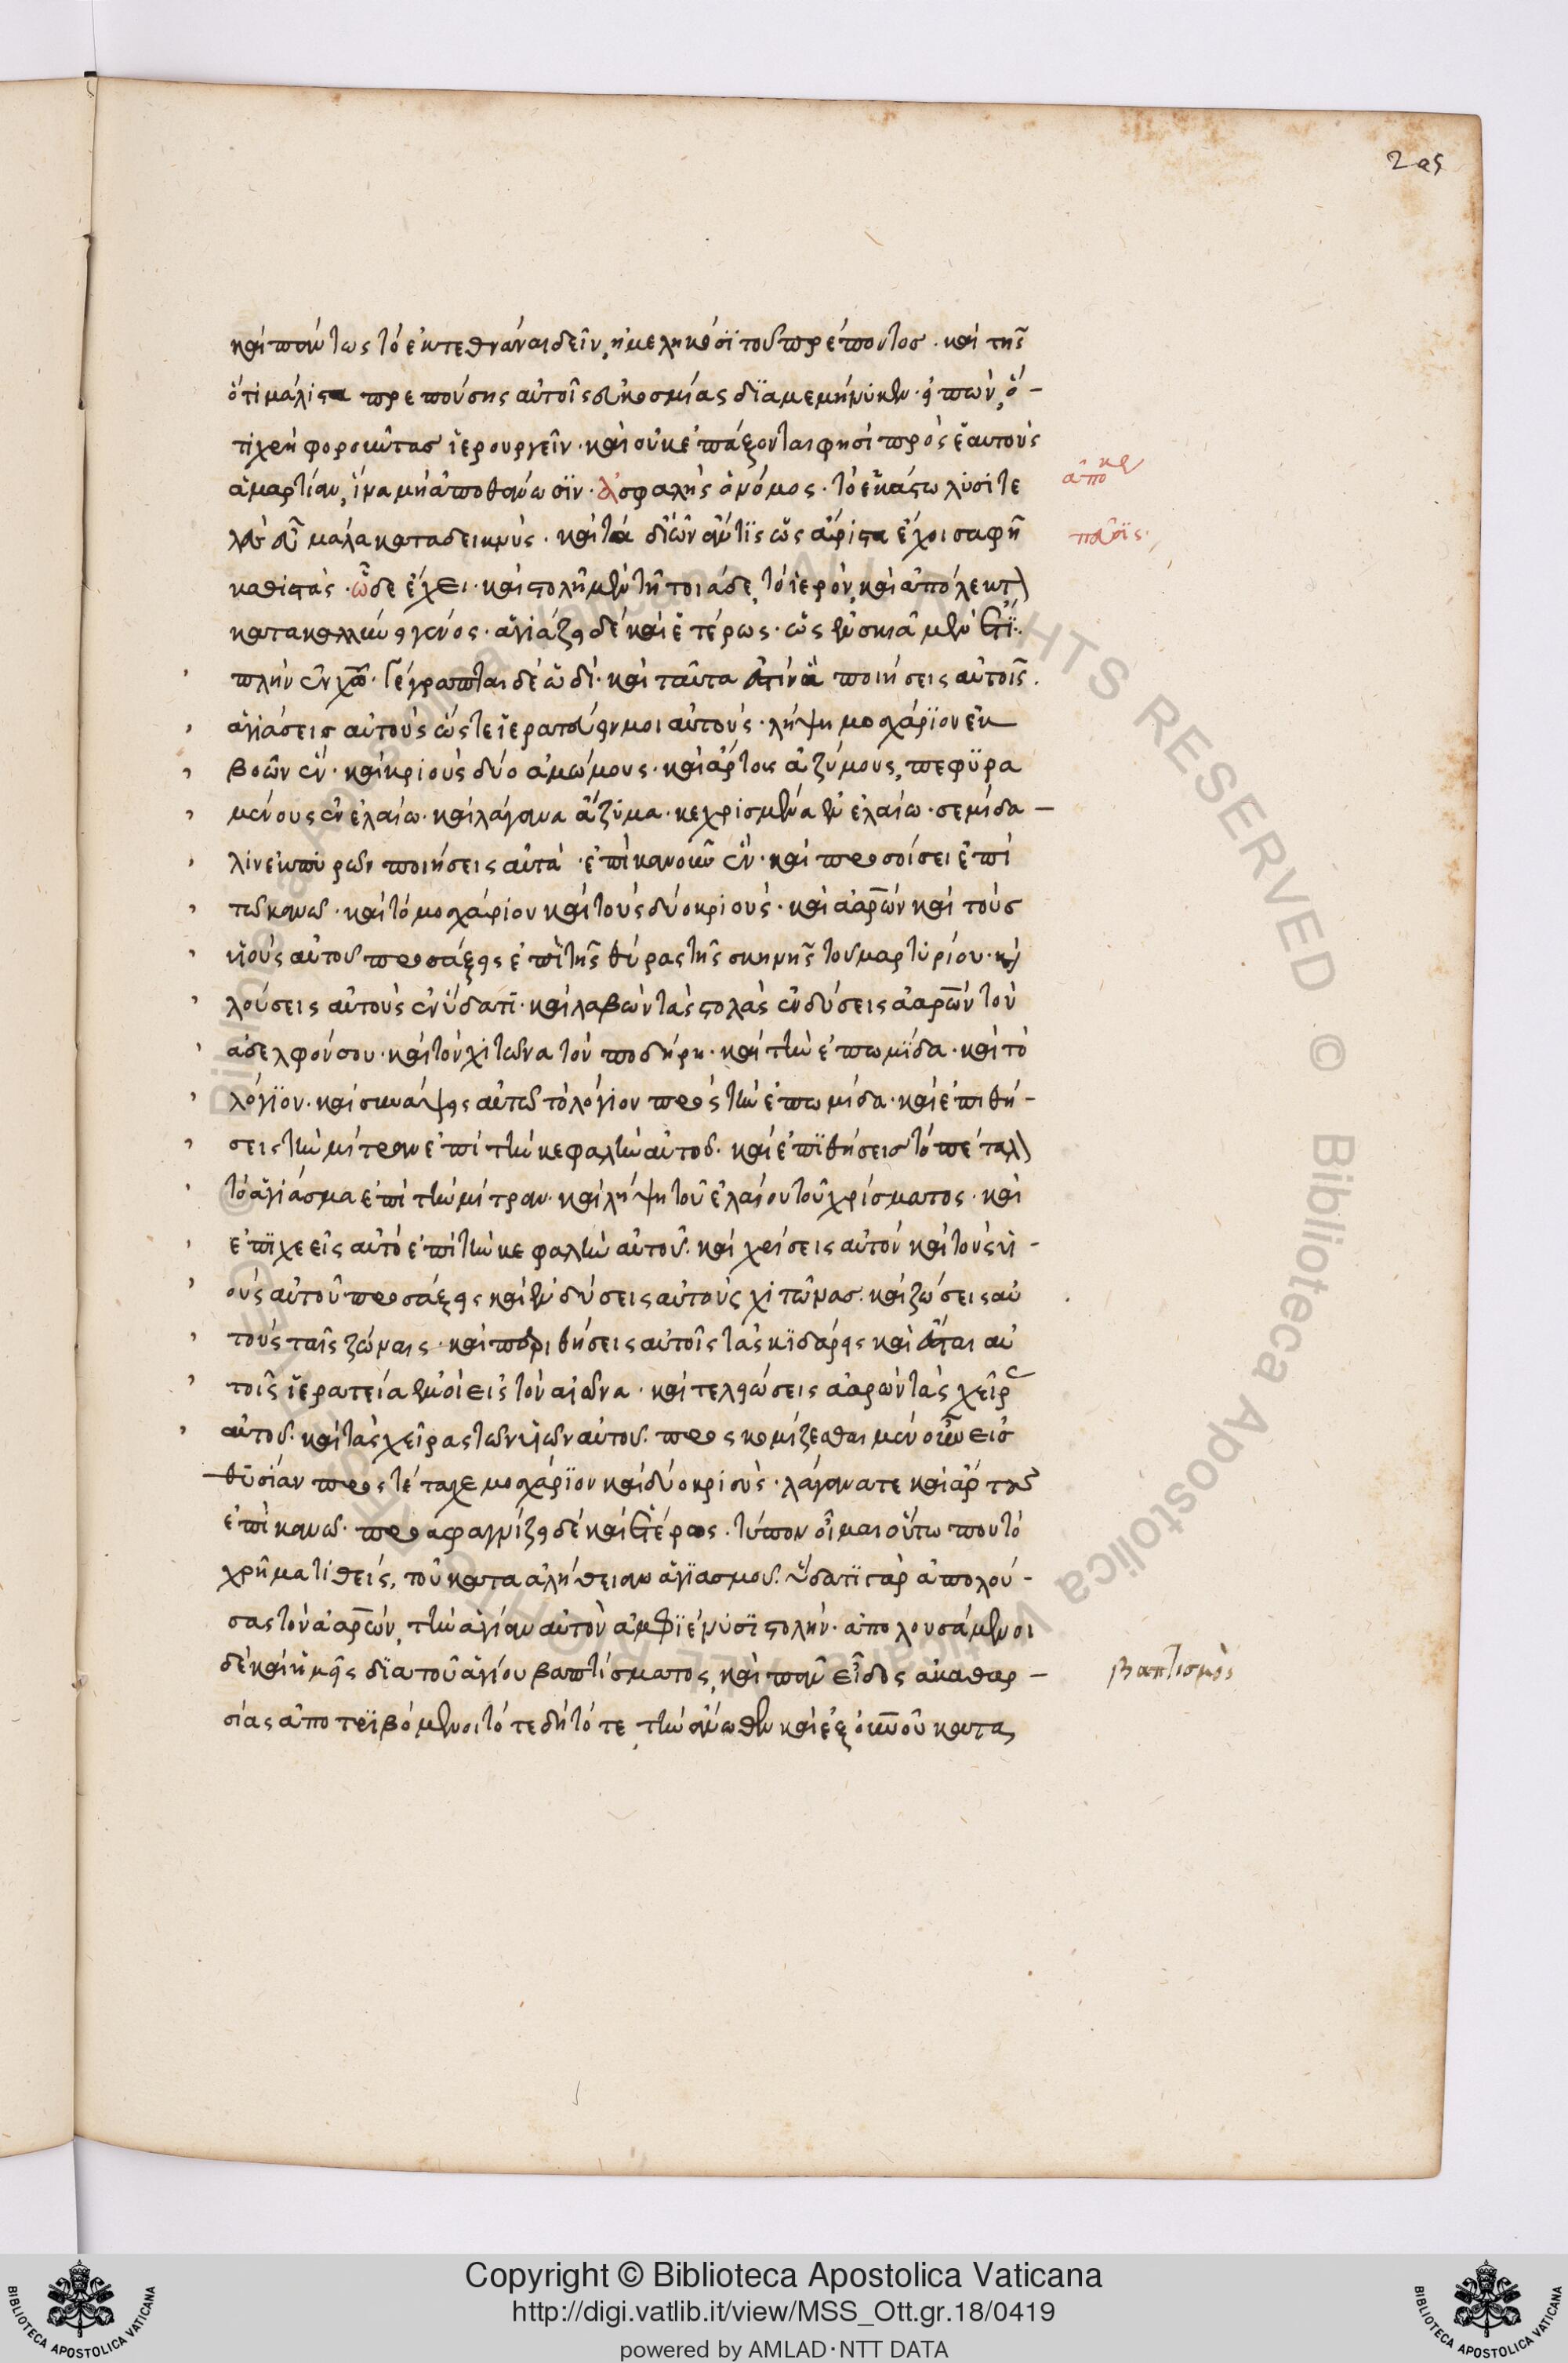 295
καὶ πάντως τὸ ἐκτεθνάναι δεῖν, ἠμεληκόσι τοῦ πρέποντος · καὶ τῆς
ὅτι μάλιστα πρεπούσης αὐτοῖς εὐκοσμίας διαμεμήνυκεν · εἰπών, ὅ-
τι χρὴ φοροῦντας ἱερουργεῖν · καὶ οὐκ ἐπάξονται φησὶ πρὸς ἑαυτοὺς
ἁμαρτίαν, ἵνα μὴ ἀποθάνωσιν · Ἀσφαλὴς ὁ νόμος · τὸ ἑκάστω λυσιτε
λοῦν εὖ μάλα καταδεικνύς · καὶ τὰ δι' ὧν ἄν τις ὡς ἄριστα ἔχοι σαφῆ
καθιστάς · ὧδε ἔχει · καὶ στολῆ μὲν τῆ τοιᾶδε, τὸ ἱερὸν, καὶ ἀπόλεκτον
κατακαλλύνει γένος · ἁγιάζει δὲ καὶ ἑτέρως · ὡς ἐν σκιᾶ μὲν ἔτι ·
πλὴν ἐν χῶ · Γέγραπται δὲ ὡδί · καὶ ταῦτα ἐστὶν ἃ ποιήσεις αὐτοῖς .
ἁγιάσεις αὐτοὺς ὥστε ἱερατεύειν μοι αὐτούς · λήψη μοσχάριον ἐκ
βοῶν ἕν · καὶ κριοὺς δύο ἀμώμους · καὶ ἄρτους ἀζύμους, πεφυρα
μένους ἐν ἐλαίω · καὶ λάγανα ἄζυμα · κεχρισμένα ἐν ἐλαίω · σεμίδα-
λιν ἐκ πυρῶν ποιήσεις αὐτά · ἐπὶ κανοῦν ἕν · καὶ προσοίσει ἐπὶ
τῶ κανῶ · καὶ τὸ μοσχάριον καὶ τοὺς δύο κριούς · καὶ ἀαρὼν καὶ τοὺς
υἱοὺς αὐτοῦ προσάξεις ἐπὶ τῆς θύρας τῆς σκηνῆς τοῦ μαρτυρίου · καὶ
λούσεις αὐτοὺς ἐν ὕδατι · καὶ λαβὼν τὰς στολὰς ἐνδύσεις ἀαρὼν τὸν
ἀδελφόν σου · καὶ τὸν χιτῶνα τὸν ποδήρη · καὶ τὴν ἐπωμίδα · καὶ τὸ
λόγιον · καὶ συνάψεις αὐτῶ τὸ λόγιον πρὸς τὴν ἐπωμίδα · καὶ ἐπιθή-
σεις τὴν μίτραν ἐπὶ τὴν κεφαλὴν αὐτοῦ · καὶ ἐπιθήσεις τὸ πέταλον
τὸ ἁγίασμα ἐπὶ τὴν μίτραν · καὶ λήψη τοῦ ἐλαίου τοῦ χρίσματος · καὶ
ἐπιχεεῖς αὐτὸ ἐπὶ τὴν κεφαλὴν αὐτοῦ · καὶ χρίσεις αὐτόν καὶ τοὺς υἱ-
οὺς αὐτοῦ προσάξεις καὶ ἐνδύσεις αὐτοὺς χιτῶνας · καὶ ζώσεις αὐ
τοὺς ταῖς ζώναις · καὶ περιθήσεις αὐτοῖς τὰς κιδάρεις καὶ ἔσται αὐ
τοῖς ἱερατεία ἐμοὶ εἰς τὸν αἰῶνα · καὶ τελειώσεις ἀαρὼν τὰς χεῖρας
αὐτοῦ · καὶ τὰς χεῖρας τῶν υἱῶν αὐτοῦ · προσκομίζεσθαι μὲν οὖν εἰς
θυσίαν προστέταχε μοσχάριον καὶ δύο κριούς · λάγανά τε καὶ ἄρτους
ἐπὶ κανῶ · προασφαγνίζει δὲ καὶ ἑτέρως · τύπον οἶμαι οὕτω που τὸ
χρῆμα τιθείς, τοῦ κατὰ ἀλήθειαν ἁγιασμοῦ · ὕδατι γὰρ ἀπολού-
σας τὸν ἀαρών, τὴν ἁγίαν αὐτὸν ἀμφιέννυσι στολήν · ἀπολουσάμενοι
δὲ καὶ ἡμεῖς διὰ τοῦ ἁγίου βαπτίσματος, καὶ πᾶν εἶδος ἀκαθαρ-
σίας ἀποτριβόμενοι τὸ τε δὴ τότε, τὴν ἄνωθεν καὶ ἐξ οὐνοῦ κατα
βαπτισμὸς